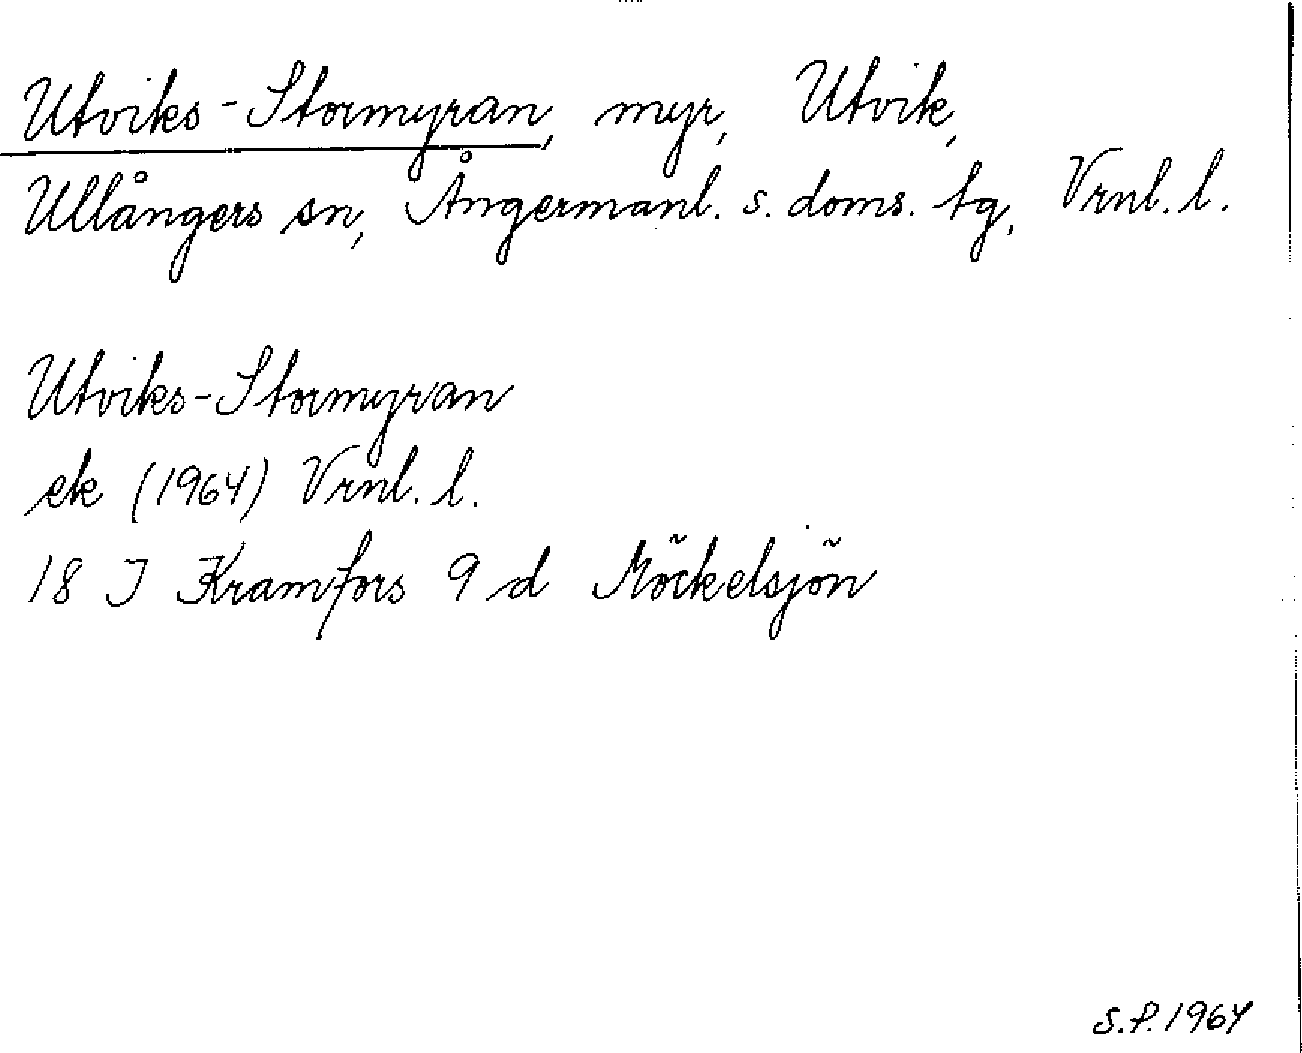 Utviks-Stormyran, myr, Utvik,
Ullångers sn, Ångermanl. s. doms. tg, Vrnl. l.
Utviks-Stormyran
ek (1964) Vrnl. l.
18 J Kramfors 9 d Möckelsjön
S.P. 1964